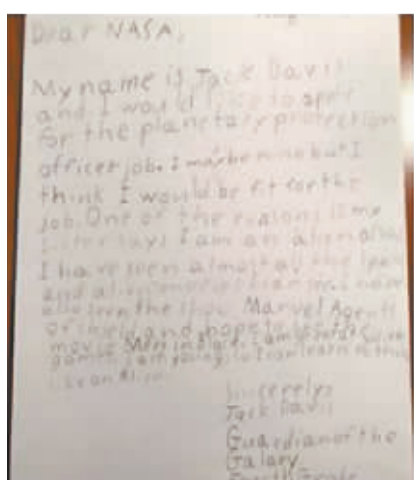 Dear NASA,
My name is Jack Davis
and I would like to apply
for the planetary protection
officer job. I may be nine but I
think I would be fit for the
job. One of the reasons is my
sister says I am an alien also
I have seen almost all the space
and alien movies I can see. I have
also seen the show Marvel Agents
of Shield and hope to see the
movie Men in Black. I am great at
games. I am young, so I can learn to think
like an Alien.
Sincerely,
Jack Davis
Guardian of the
Galaxy
Fourth Grade